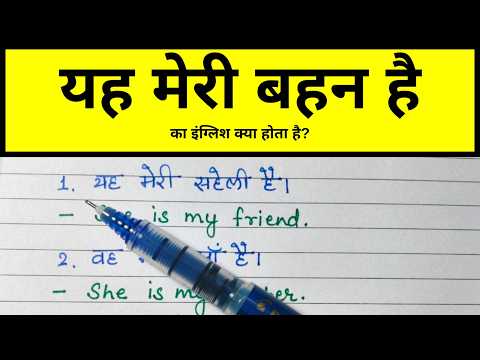 यह मेरी बहन है
का इंग्लिश क्या होता है?
1. यह मेरी सहेली है।
- is my friend.
2. वह है।
- She is my